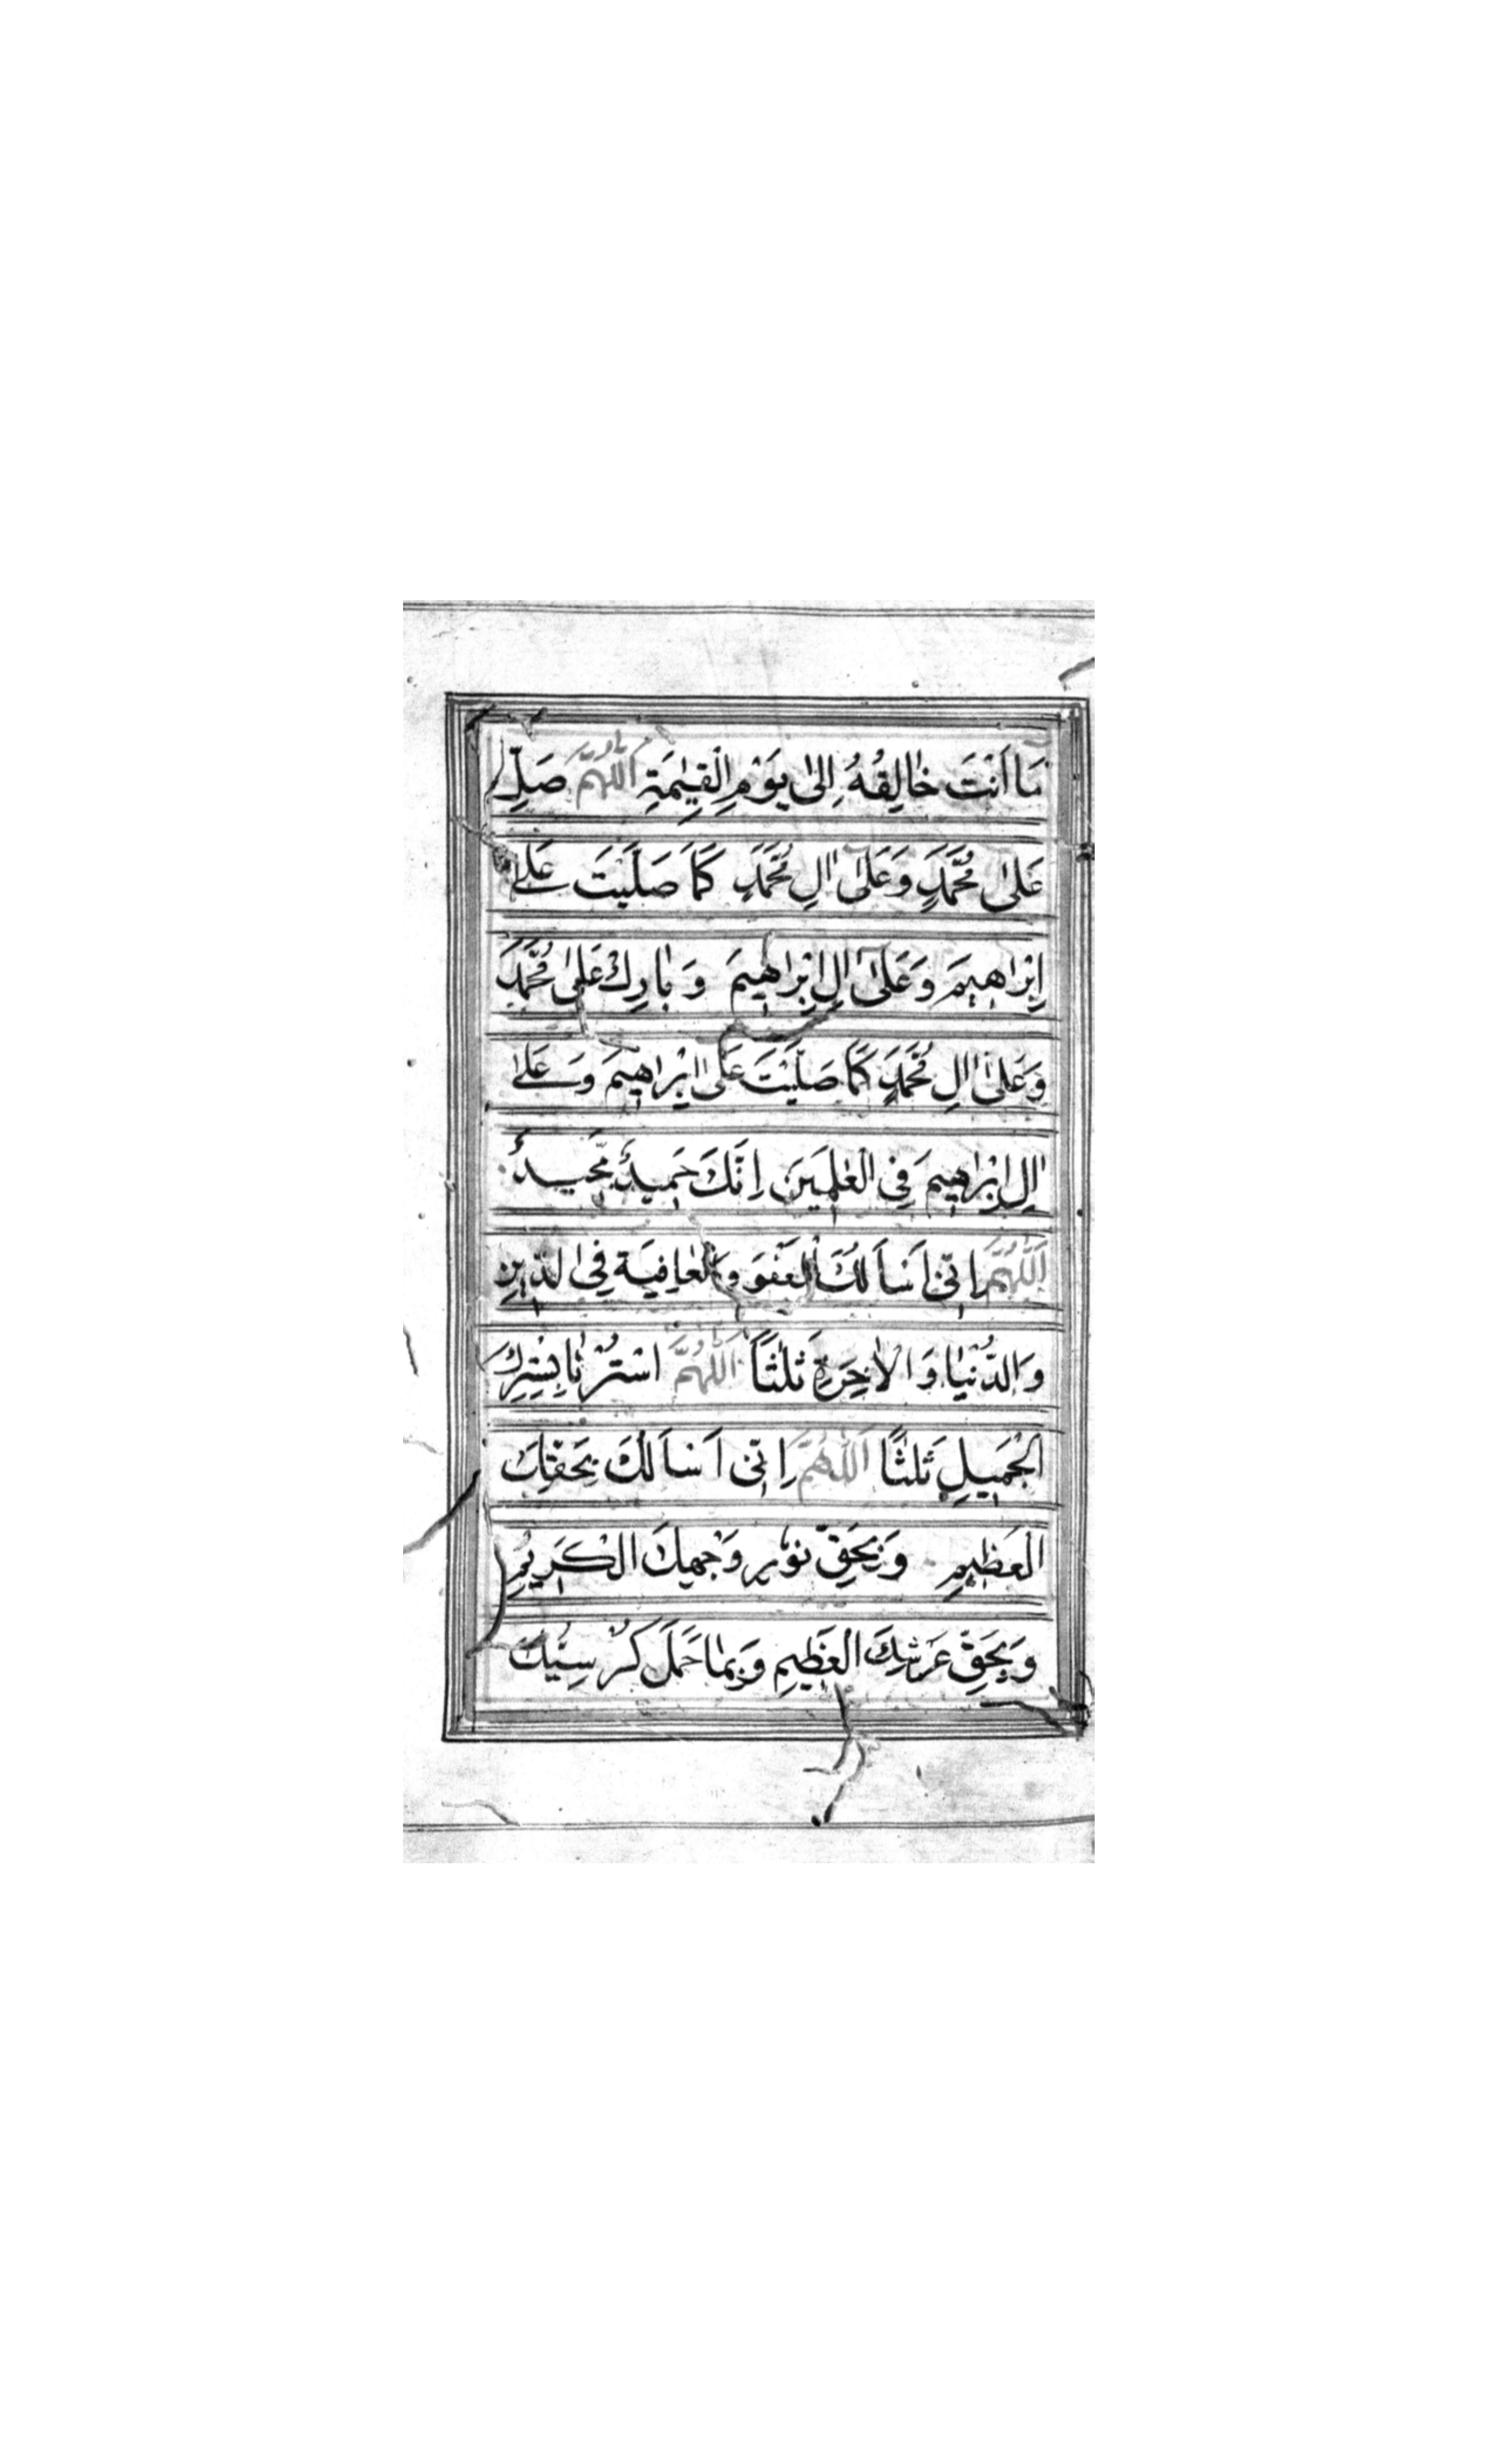 مَا اَنْتَ خَالِقُهُ اِلٰى يَوْمِ الْقِيٰمَةِ اَللّٰهُمَّ صَلِّ
عَلٰى مُحَمَّدٍ وَعَلٰى اٰلِ مُحَمَّدٍ كَمَا صَلَّيْتَ عَلٰى
اِبْرَاهِيمَ وَعَلٰى اٰلِ اِبْرَاهِيمَ وَبَارِكْ عَلٰى مُحَمَّدٍ
وَعَلٰى اٰلِ مُحَمَّدٍ كَمَا صَلَّيْتَ عَلٰى اِبْرَاهِيمَ وَعَلٰى
اٰلِ اِبْرٰهِيمَ فِي الْعٰلَمِيَنَ اِنَّكَ حَمِيدٌ مَّجِيدٌ
اَللّٰهُمَّ اِنِّى اَسْاَلُكَ الْعَفْوَ وَالْعَافِيَةَ فِي الدِّينِ
وَالدُّنْيَا وَالْاٰخِرَةِ ثَلٰثًا اَللّٰهُمَّ اسْتُرْنَا بِسِتْرِكَ
الْجَمِيلِ ثَلٰثًا اَللّٰهُمَّ اِنِّى اَسْاَلُكَ بِحَقِّكَ
الْعَظِيمِ وَبِحَقِّ نُورِ وَجْهِكَ الْكَرِيمِ
وَبِحَقِّ عَرْشِكَ الْعَظِيمِ وَبِمَا حَمَلَ كُرْسِيُّكَ